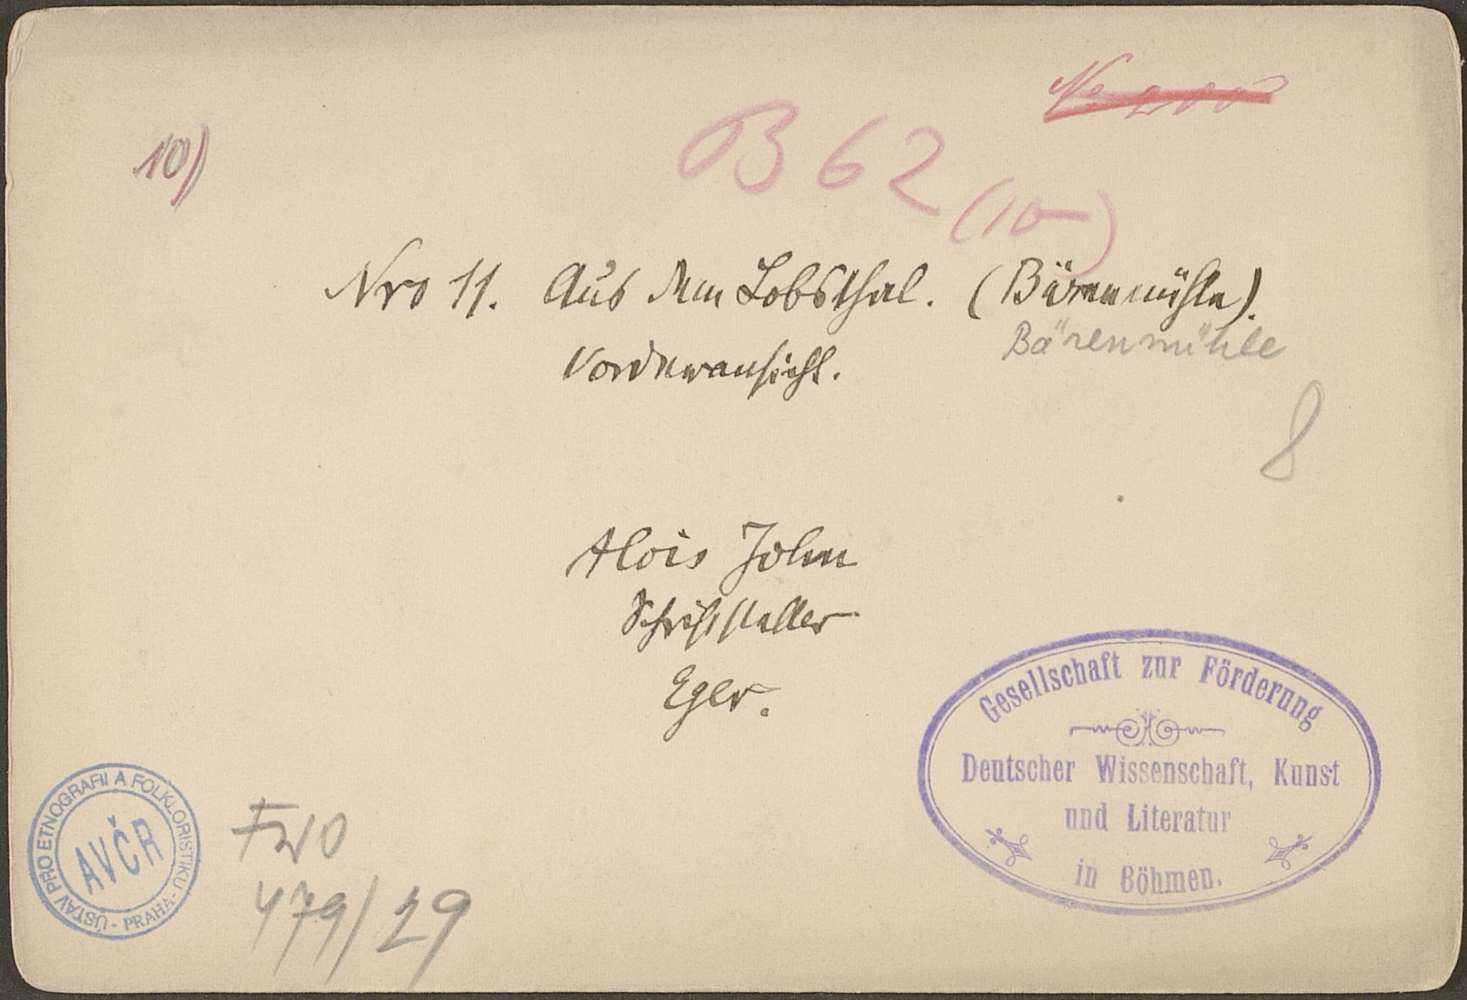 10)
B 62 (10)
Nro 11. Aus dem Lobsthal. (Bärenmühle).
Bärenmühle
Vorderansicht.
8
Alois John
Schriftsteller
Eger.
Gesellschaft zur Förderung
Deutscher Wissenschaft, Kunst
und Literatur
in Böhmen.
ÚSTAV PRO ETNOGRAFII A FOLKLORISTIKU - PRAHA -
AVČR
479/29